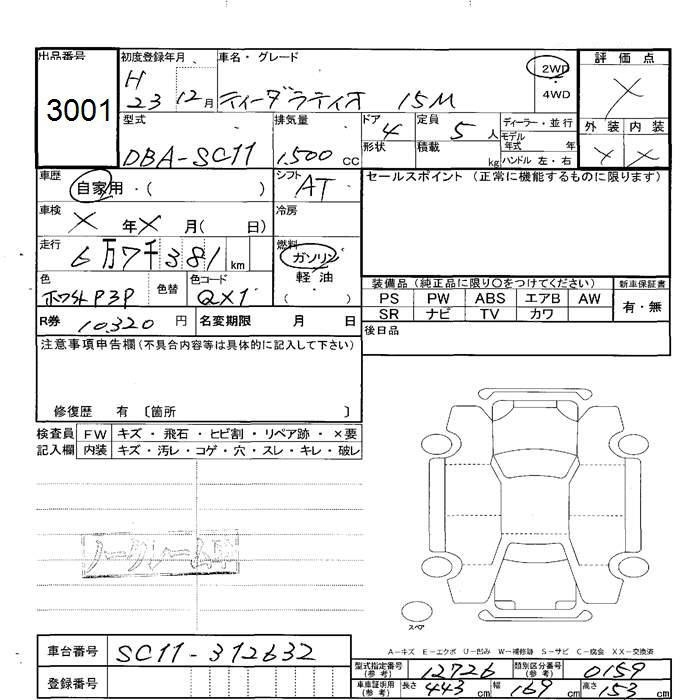 出品番号
3001
初度登録年月
H
23 12月
車名・グレード
ティーダ ラティオ 15M
2WD
・
4WD
評価点
X
外装 内装
X X
型式
DBA-SC11
排気量
1,500 cc
ドア
4
形状
定員
5 人
積載
kg
ディーラー・並行
モデル
年式 年
ハンドル 左・右
車歴
自家用・( )
シフト
AT
セールスポイント (正常に機能するものに限ります)
車検
X 年 X 月( 日)
冷房
走行
6万7千381 km
燃料
ガソリン
軽油
色
ホワイトP3P
色替
色コード
QX1
R券 10,320 円
名変期限 月 日
装備品(純正品に限り○をつけてください)
新車保証書
PS PW ABS エアB AW
SR ナビ TV カワ
有・無
後日品
注意事項申告欄(不具合内容等は具体的に記入して下さい)
修復歴 有 〔箇所 〕
検査員 FW キズ・飛石・ヒビ割・リペア跡・×要
記入欄 内装 キズ・汚レ・コゲ・穴・スレ・キレ・破レ
スペア
A-キズ E-エクボ U-凹み W-補修跡 S-サビ C-腐食 XX-交換済
車台番号 SC11-312632
登録番号
型式指定番号
(参考)
12726
類別区分番号
(参考)
0159
車車証明用
(参考)
長さ 443 cm 幅 169 cm 高さ 153 cm